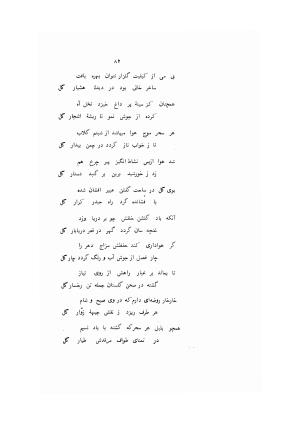 ۸۴
بی می از کیفیت گلزار نتوان بهره یافت
ساغر خالی بود در دیدهٔ هشیار گل
همچنان کز سینهٔ پر داغ خیزد نخل آه
کرده از جوش نمو تا ریشهٔ اشجار گل
هر سحر موج هوا میپاشد از شبنم گلاب
تا ز خواب ناز گردد در چمن بیدار گل
شد هوا ازبس نشاط انگیز پیر چرخ هم
زد ز خورشید برین بر گنبد دستار گل
بوی گل در ساحت گلشن عبیر افشان شده
یا فشانده گرد راه حیدر کرار گل
آنکه باد گلشن خلقش چو بر دریا وزد
غنچه سان گردد گهر در قعر دریابار گل
گر هواداری کند حفظش مزاج دهر را
چار فصل از جوش آب و رنگ گردد چار گل
تا بماند بر غبار راهش از روی نیاز
گشته در صحن گلستان جمله تن رخسار گل
خارخار روضه‌ای دارم که در وی صبح و شام
هر طرف ریزد ز نقش جبههٔ زوار گل
همچو بلبل هر سحرگه گشته با باد نسیم
در تمنای طواف مرقدش طیار گل